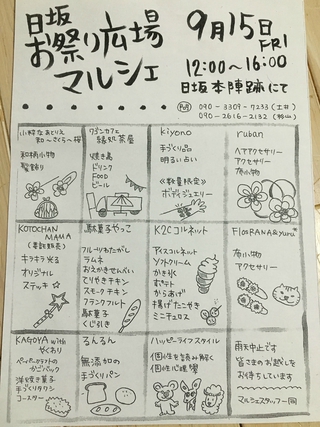 日坂
お祭り広場
マルシェ
9月15日
FRI
12:00〜16:00
日坂本陣跡にて
090-3309-7233(土井)
090-2616-2132
小粋なあとりえ
和〜さくら〜桜
和柄小物
髪飾り
ワゴンカフェ
縁処茶屋
焼き鳥
ドリンク
Food
ビール
kiyono
手づくり品
明るい占い
《数量限定》
ボディジュエリー
ruban
ヘアアクセサリー
アクセサリー
布小物
KOTOCHAN
MAMA
(委託販売)
キラキラ光る
オリジナル
ステッキ☆
駄菓子やっこ
フルーツわたがし
ラムネ
おえかきせんべい
てりやきチキン
スモークチキン
フランクフルト
駄菓子
くじ引き
K2Cコルネット
アイスコルネット
ソフトクリーム
かき氷
ポテト
からあげ
揚げたこやき
ミニチュロス
FlosRANA&yuru*
布小物
アクセサリー
KAGOYA with
ペーパークラフトの
かごバック
洋焼き菓子
手づくりタワシ
コースター
るんるん
無添加の
手づくりパン
ハッピーライフスタイル
個性を読み解く
個性心理學
雨天中止です
皆さまのお越しを
お待ちしています
マルシェスタッフ一同